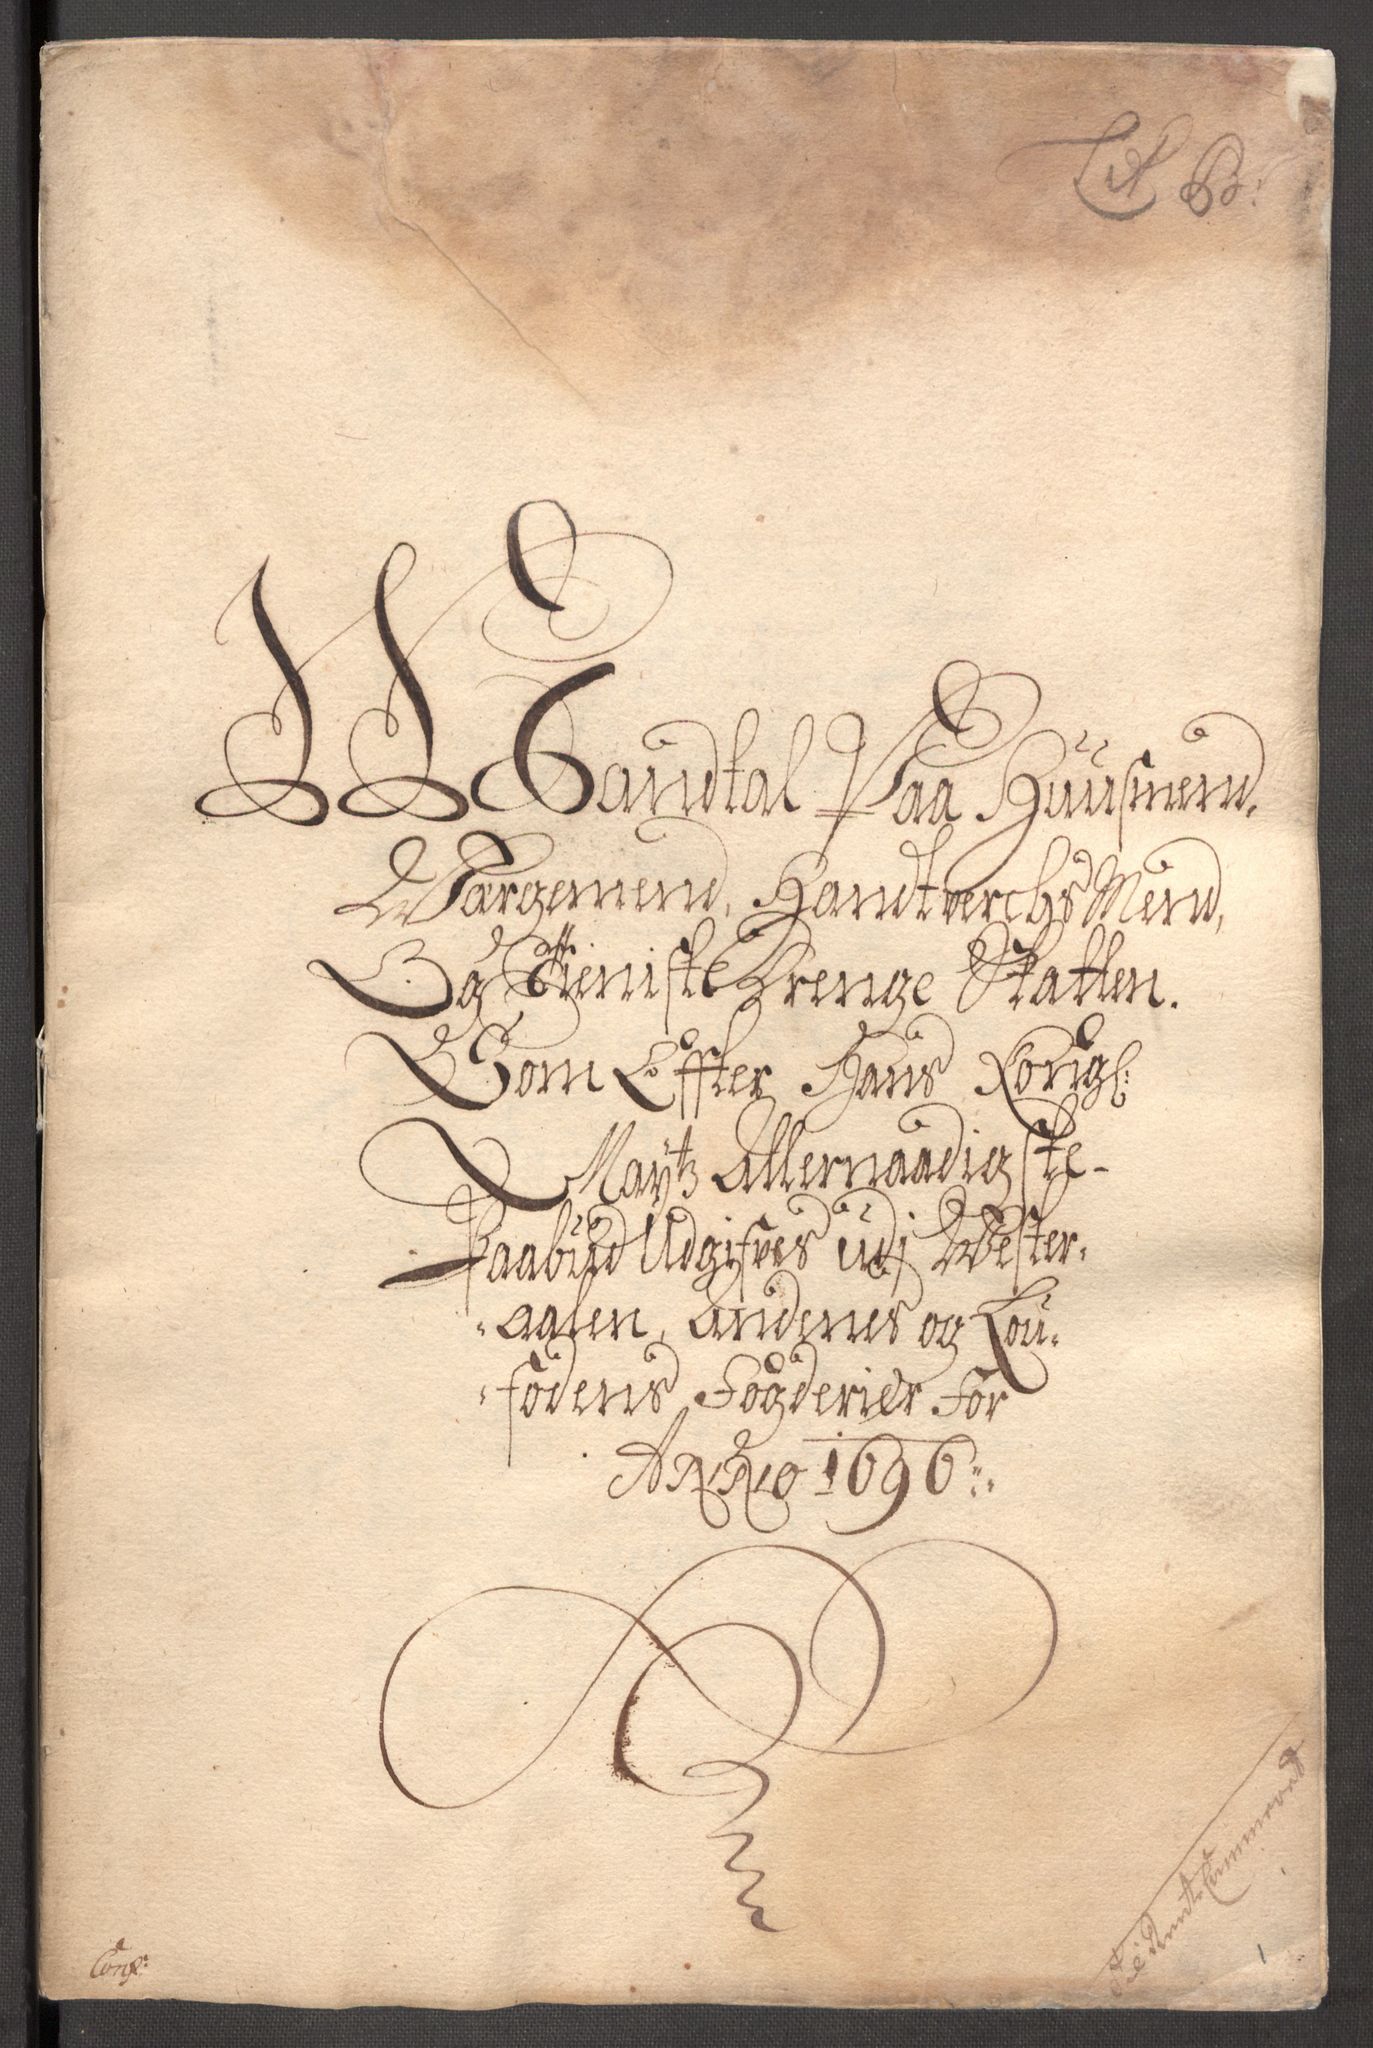 Lit B:
Mandtal Paa Huusmend,
Børgemend, Handtverchs Mend,
Og Tieniste Drenge Skatten.
Som Effter Hans Kongl:
Maytz Allernaadigste
Paabud Udgifves udj Wester-
-aalen, Andenes og Lou-
-fodens Fogderier for
Anno 1696
1